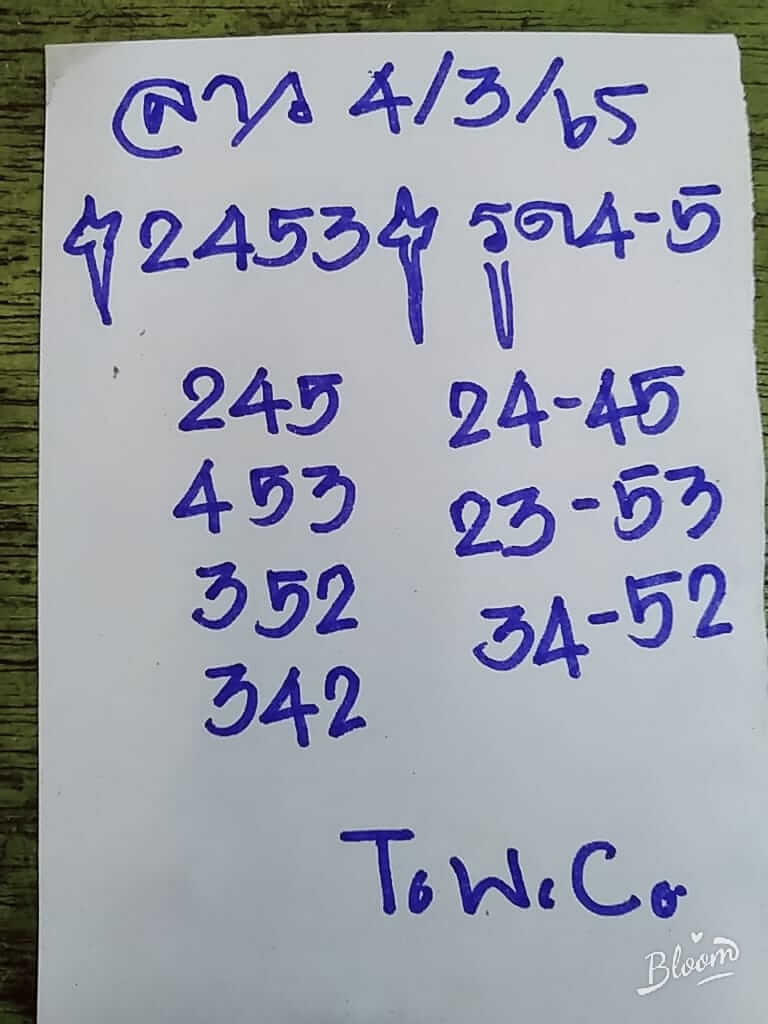 ลาว 4/3/65
2453 รูด4-5
245 24-45
453 23-53
352 34-52
342
Bloom